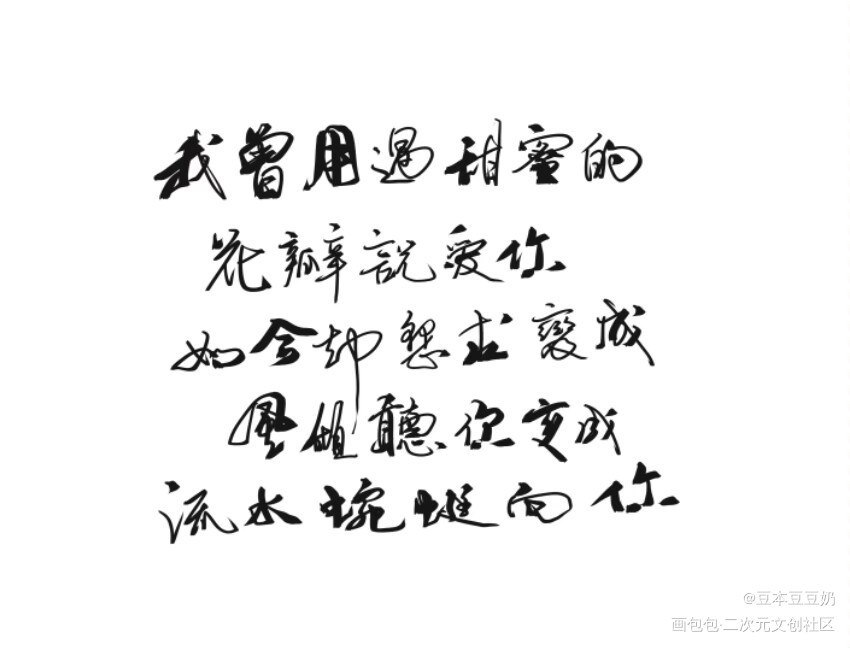 我曾用過甜蜜的
花瓣說愛你
如今却懇求變成
風值聽你变成
流水蜿蜒向你
@豆本豆豆奶
画包包·二次元文创社区